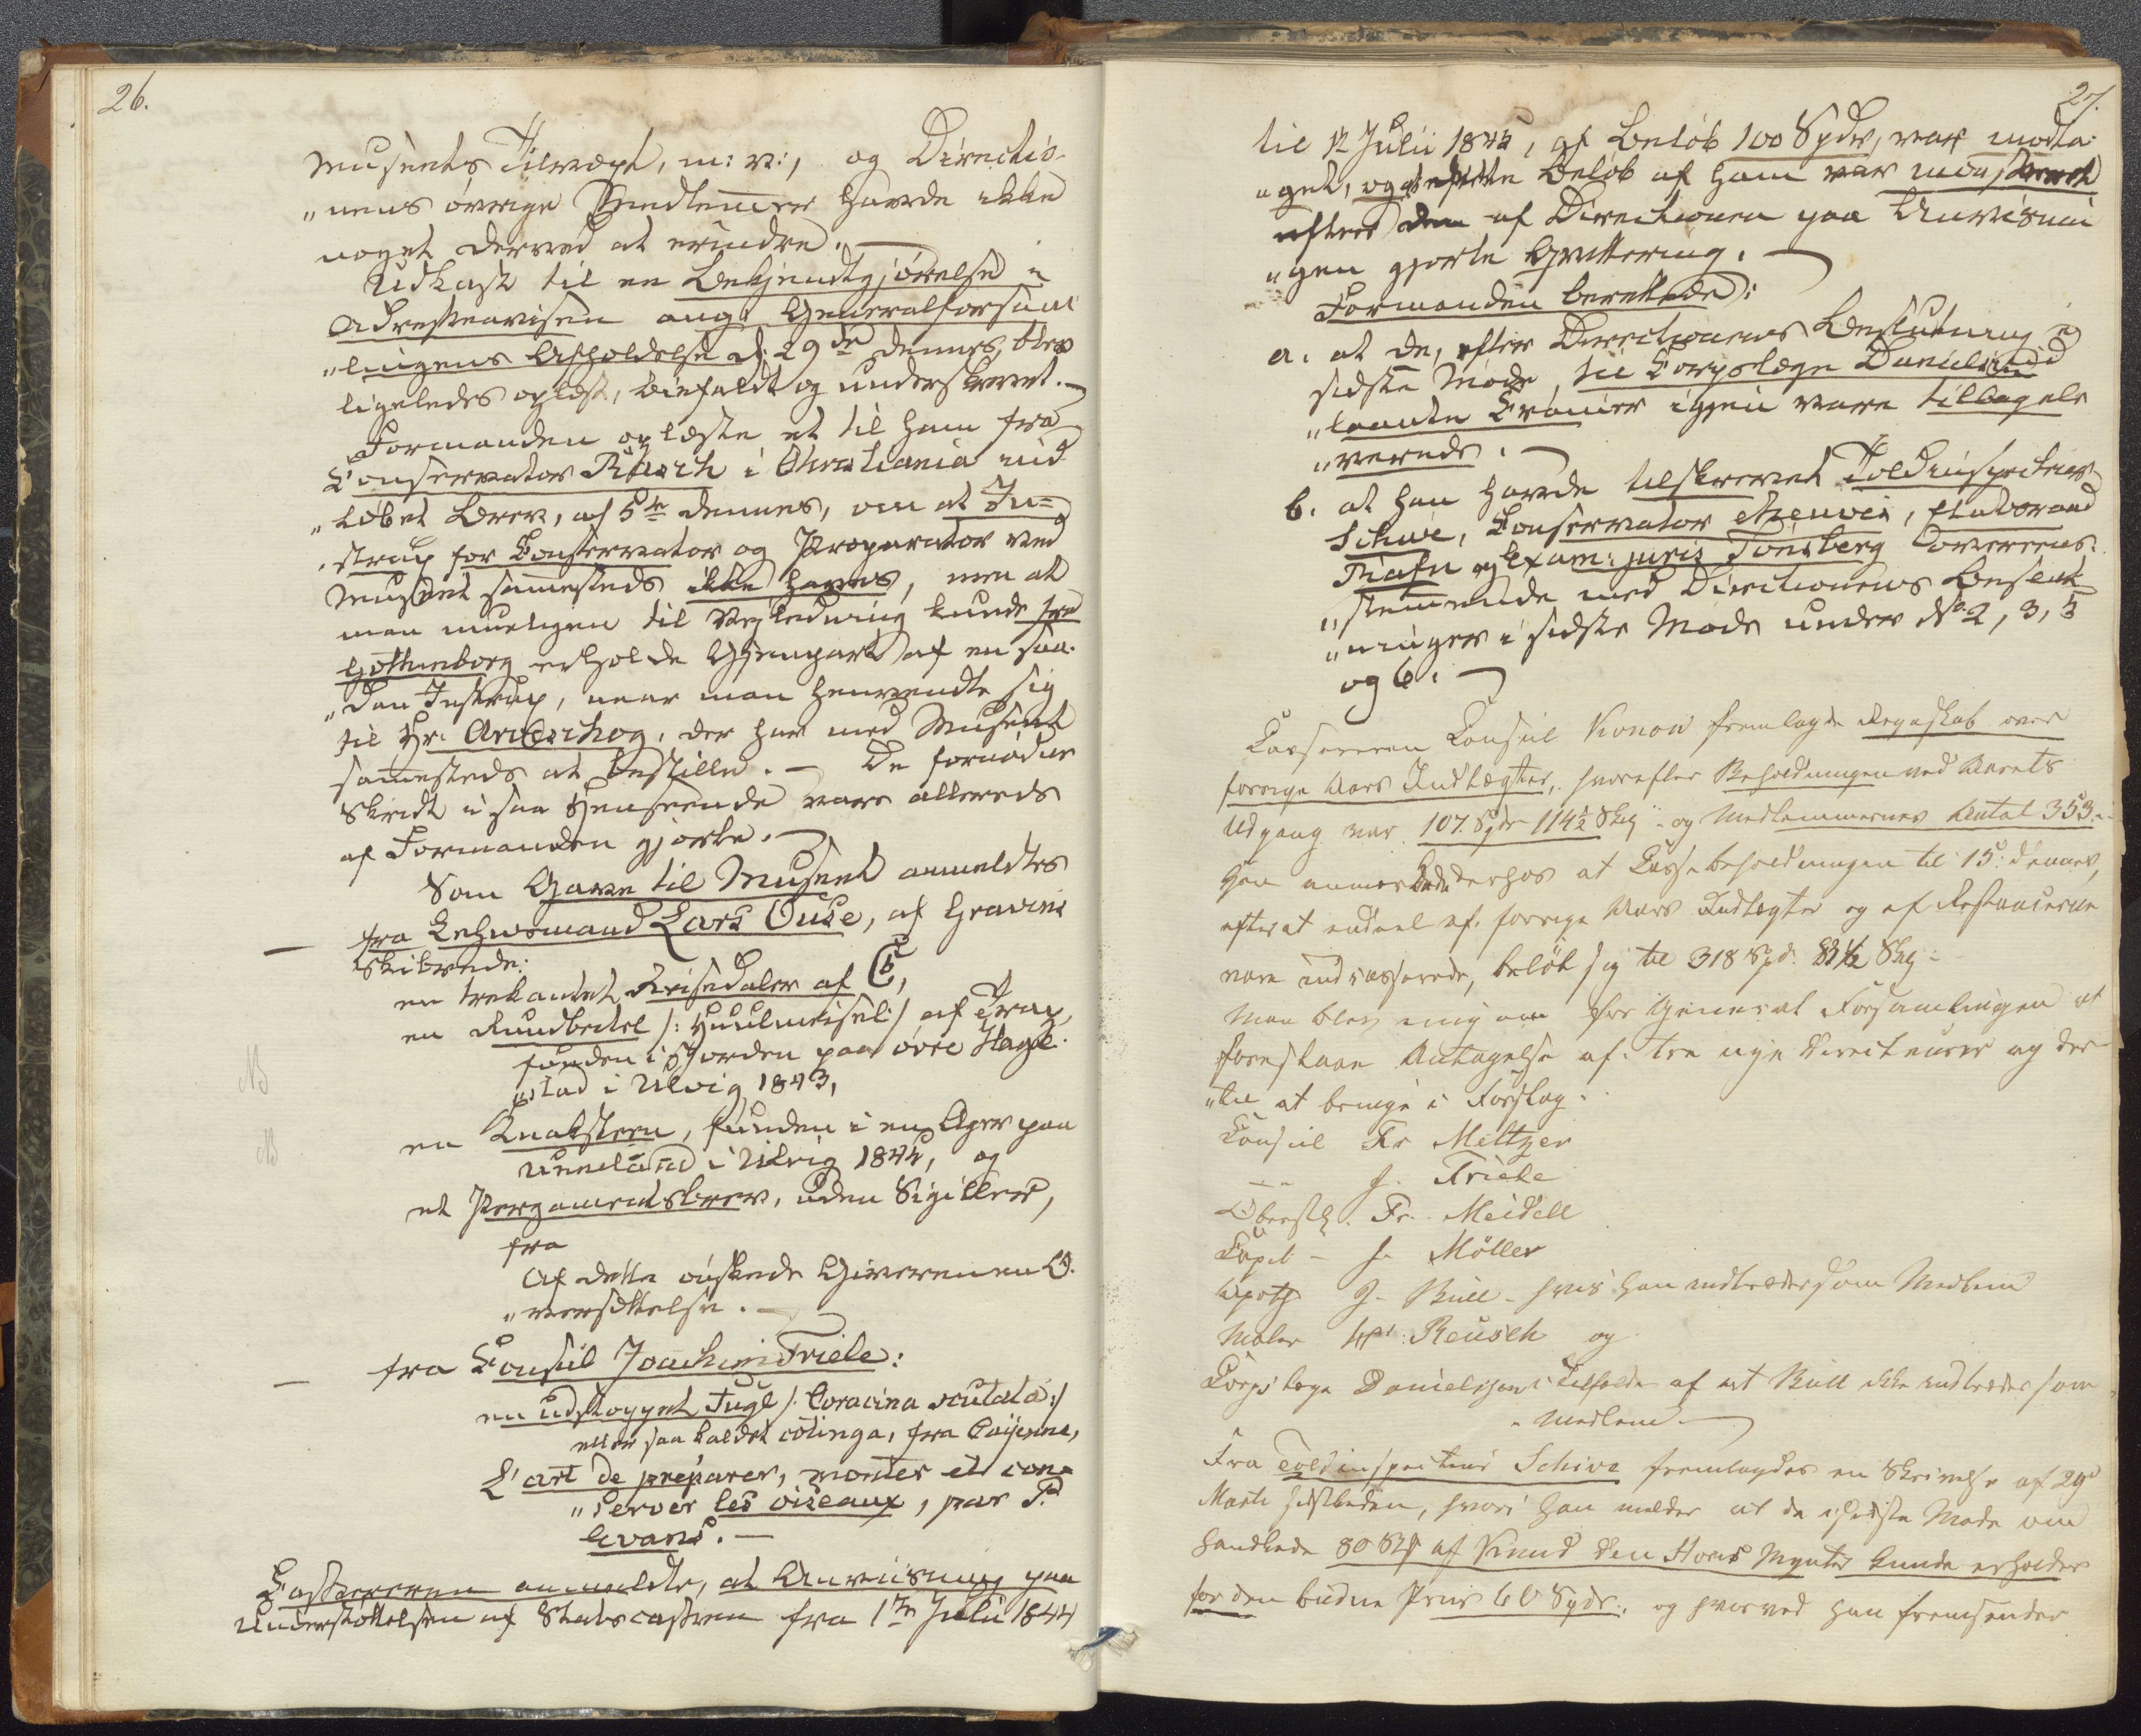 26.
Museets Tilvæxt, m: v:, og Directio-
"nens øvrige Medlemmer havde ikke
noget derved at erindre.
Udkast til en Bekjendtgjørelse i
Adresseavisen ang: Generalforsam
"lingens Afholdelse d: 29de dennes, blev
ligeledes oplæst, biefaldt og underskrevet.
Formanden oplæste et til ham fra
Conservator Rasch i Christiania ind
"løbet Brev, af 5te dennes, om at In-
"strux for Conservator og Præparator ved
Museet sammesteds ikke haves, men at
man mueligen til Vejledning kunde fra
Gothenborg erholde Gjenpart af en saa-
"dan Instrux, naar man henvendte sig
til Hr. , der har med Museet
sammesteds at bestille. — De fornødne
Skridt i saa Henseende vare allerede
af Formanden gjorte.
Som Gave til Museet anmeldtes
fra Lehnsmand Lars Huse, af Gravens
Skibrede:
en trekantet Krisedaler af C5,
en Rundbeitel /: Huulmeisel :/ af Trap,
funden i Jorden paa øvre Hage-
"stad i Ulvig 1843,
NB
en Knaksteen, funden i en Ager paa
NB
Unneland i Ulvig 1844, og
et Pergamentsbrev, uden Sigiller,
fra
Af dette ønskede Giveren en O-
"versættelse.
fra Consul Joachim Friele:
en udstoppet Fugl /: Coracina scutata :/
eller saa kaldet cotinga, fra Caijenne,
L'art de préparer, monter et con-
"server les oiseaux, par P.
Evans.
Cassereren anmeldte, at Anviisning paa
Understøttelsen af Statscassen fra 1te Julii 1844
27.
til 1te Julii 1845, af Beløb 100 Spdr, var modta-
"get, og at dette Beløb af ham var
efter den af Directionen paa Anvisnin
"gen gjorte Qvittering.
Formanden berettede:
a. at de, efter Directionens Beslutning i
sidste Møde, til Corpslæge Danielsen
"laante Cranier igjen vare tilbagele
"verede.
b. at han havde tilskrevet Toldinspecteur
Schive, Conservator , Etatsraad
Rafn og Exam: juris Tönsberg overeens-
"stemmende med Directionens Beslut
"ninger i sidste Møde under No 2, 3, 5
og 6.
Cassereren Consul Konow fremlagde Regnskab over
forrige Aars Indtægter, hvorefter Beholdningen ved Aarets
Udgang var 107 Spdr 114½ Skg og Medlemmernes Antal 353.
Han anmærkede derhos at Cassebeholdningen til 15d dennes,
efterat endeel af forrige Aars Indtægter og af Restancerne
vare indcasserede, beløb sig til 318 Spd. 83½ Skg
Man blev enig om for General Forsamlingen at
foreslaae Antagelse af tre nye Directeurer og der-
"til at bringe i Forslag.
Consul Fr Meltzer
— J. Friele
Oberstl. Fr. Meidell
Capt — J. Möller
Apoth J. Bull — hvis han indtræder som Medlem
Maler Reusch og
Corpslæge Danielssen i Tilfælde af at Bull ikke indtræder som
Medlem
Fra Toldinspecteur Schive fremlagdes en Skrivelse af 29d
Marts sidstleden, hvori han melder at de i sidste Møde om
handlede 80 Stk af Knud den Stores Mynter kunde erholdes
for den budne Priis 60 Spdr., og hvorved han fremsender